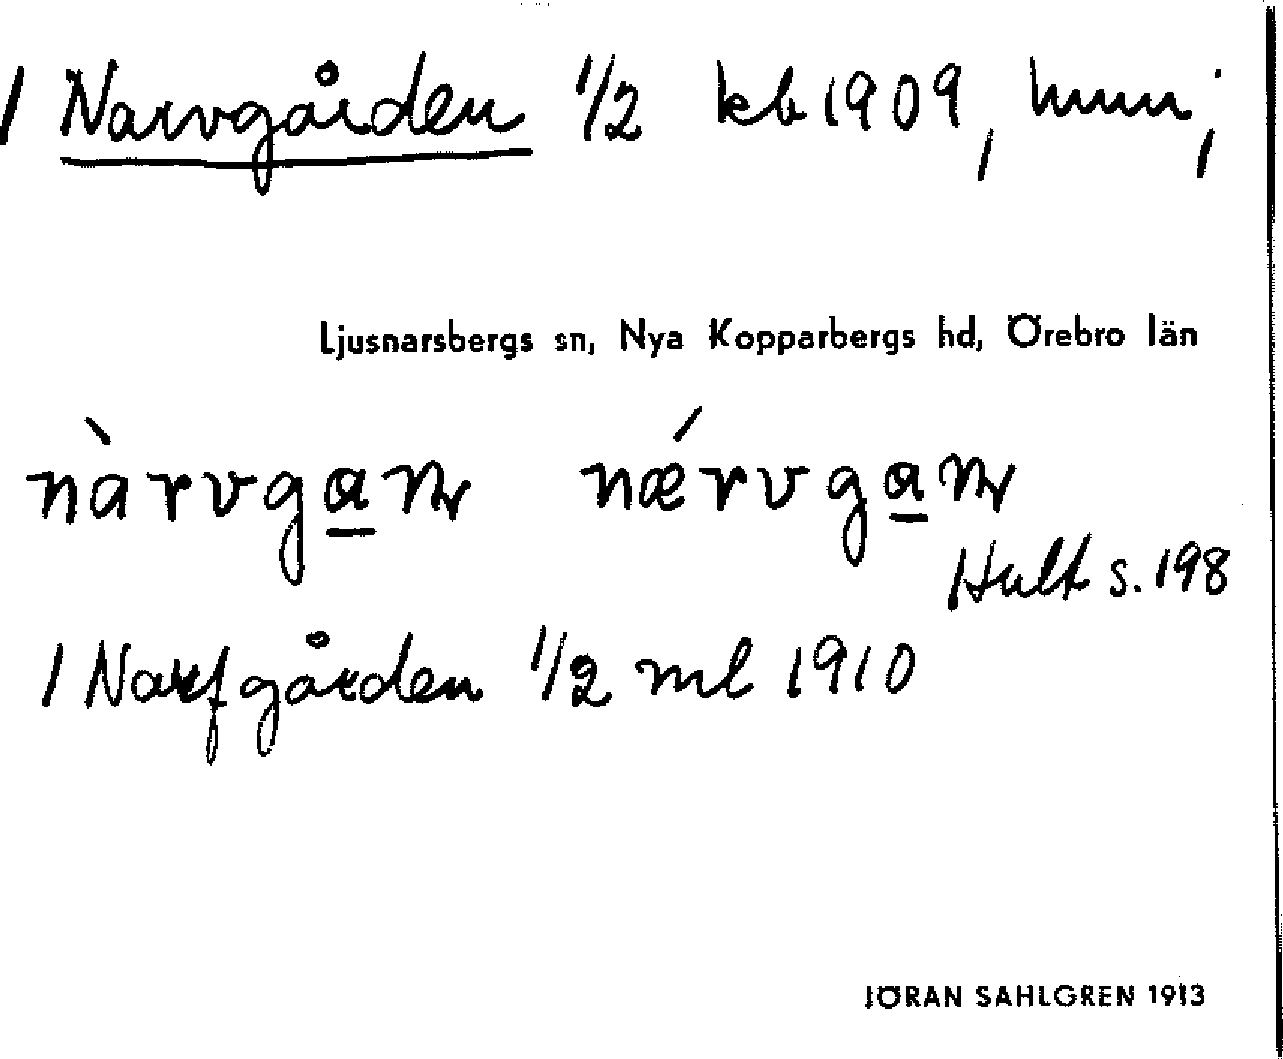 1 Narvgården 1/2 kb 1909, hmn;
Ljusnarsbergs sn, Nya Kopparbergs hd, Örebro län
nàrvgaṇ nǽrvgaṇ
Hult s. 198
1 Narfgården 1/2 ml 1910
JÖRAN SAHLGREN 1913